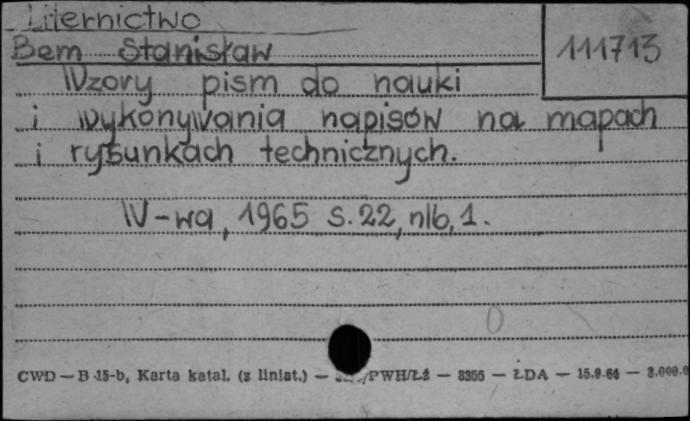 Liternictwo
111713
Bem Stanisław
Wzory pism do nauki
i wykonywania napisów na mapach
i rysunkach technicznych.
W-wa, 1965 s. 22, nlb, 1.
0
CWD — B 15-b, Karta katal. (z liniat.) — /PWH/Łź — 3355 — ŁDA — 15.9.64 —